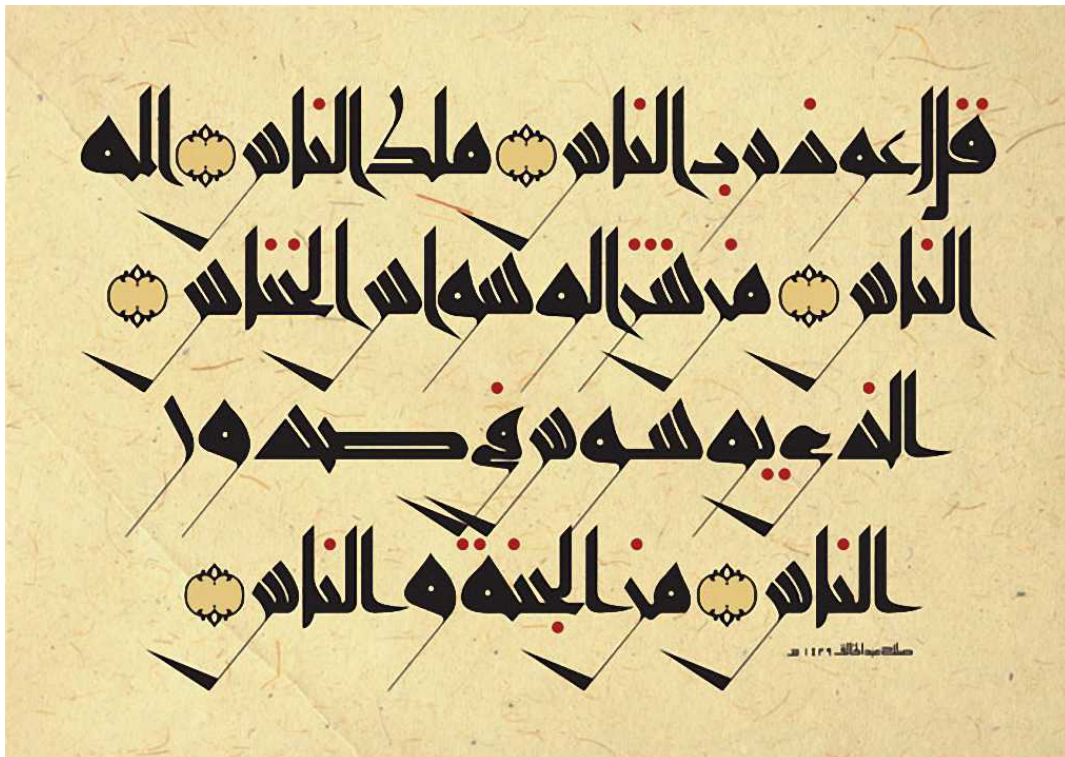 قل اعوذ برب الناس ملك الناس اله
الناس من شر الوسواس الخناس
الذي يوسوس في صدور
الناس من الجنة و الناس
صلاح عبد الخالق ١٤٣٩ هـ